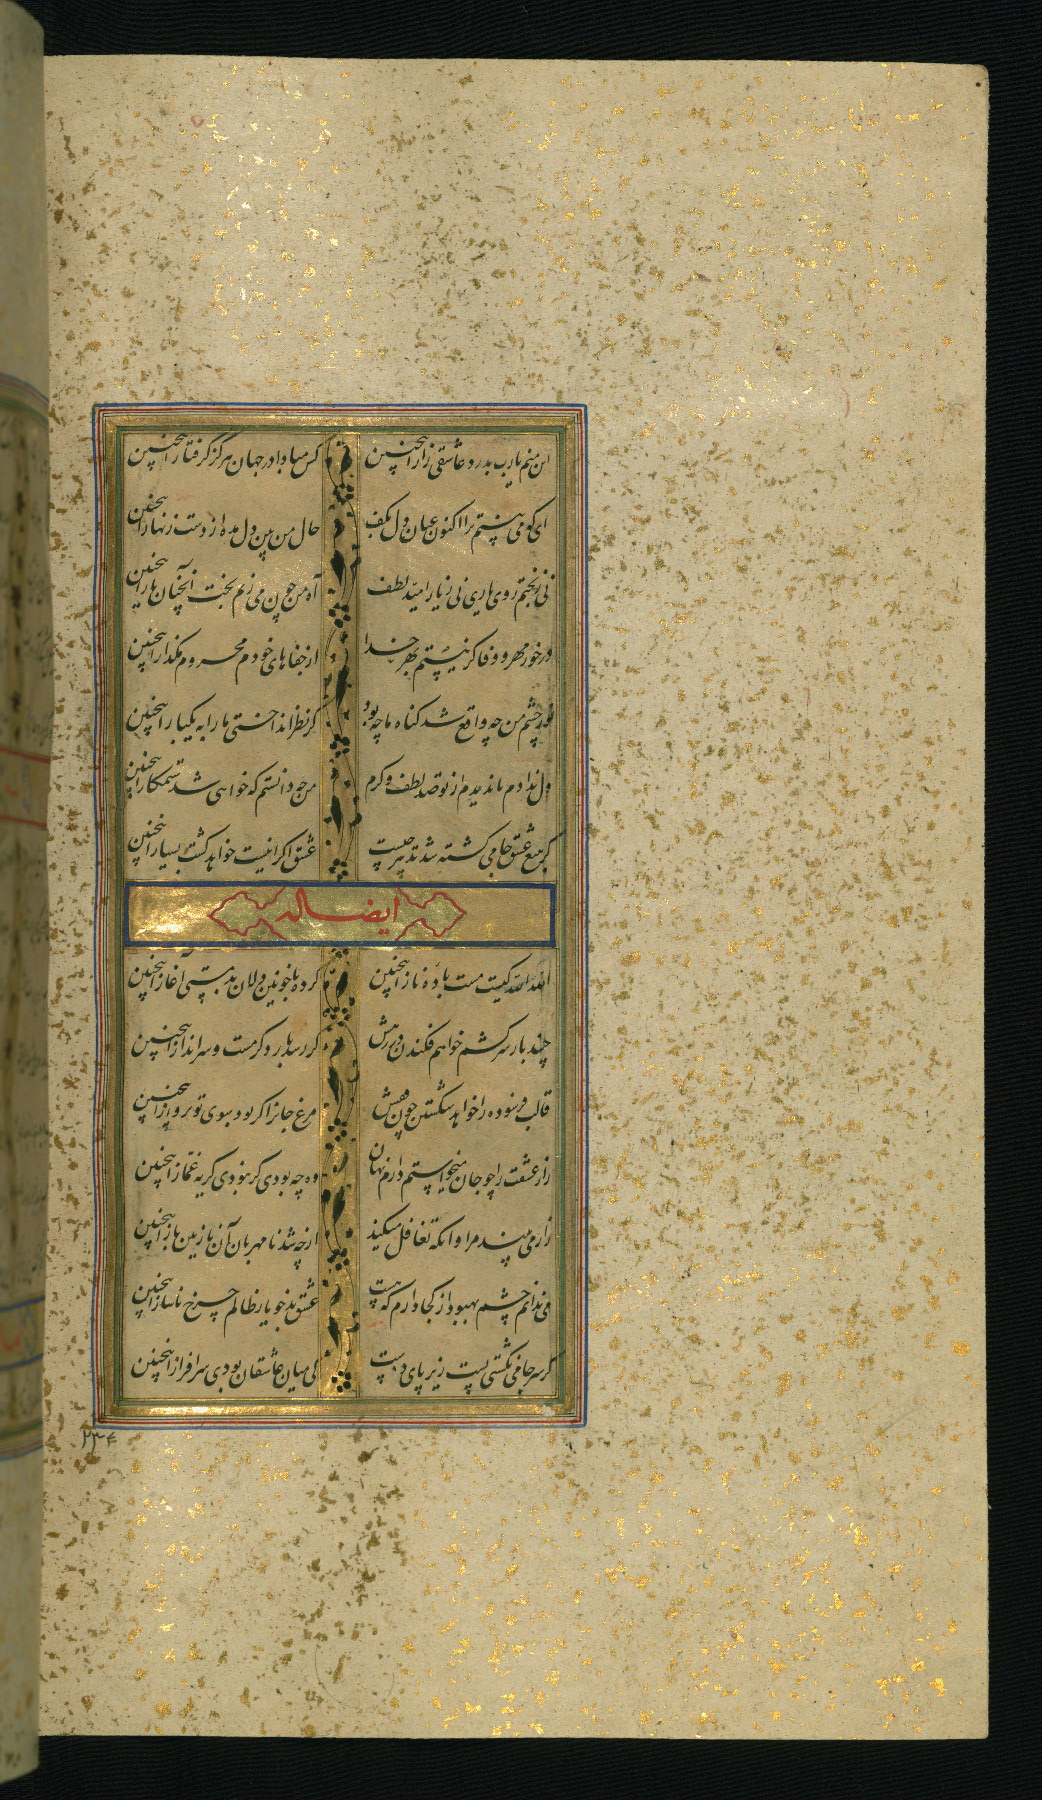 این منم یارب بدرد عاشقی زار اینچنین کس مبادا در جهان هرگز گرفتار اینچنین
ای که می بینم ترا اکنون عنان دل بکف حال من بین دل مده از دست زنهار اینچنین
نی ز بختم روی یاری نی ز یار امید لطف آه من چون می زیم بخت آنچنان یار اینچنین
در خور مهر و وفا گر نیستم بهر خدا از جفاهای خودم محروم مگذار اینچنین
نور چشم من چه واقع شد گناه ما چه بود کز نظر انداختی ما را به یکبار اینچنین
دل ندادم تا ندیدم از تو صد لطف و کرم من چه دانستم که خواهی شد ستمکار اینچنین
گر بتیغ عشق جامی کشته شد تدبیر چیست عشق اگر اینست خواهد کشت بسیار اینچنین
ایضاله
الله الله کیست مست باده ناز اینچنین کرده با خونین دلان بدمستی آغاز اینچنین
چند بار سر کشم خواهم فکندن در رهش گر رسد بار دگر مست و سرانداز اینچنین
قالب فرسوده را خواهد شکستن چون قفس مرغ جانرا گر بود سوی تو پرواز اینچنین
راز عشقت را چو جان میخواستم دارم نهان وه چه بودی گر نبودی گریه غماز اینچنین
زار می بیند مرا وانگه تغافل میکند از چه شد نامهربان آن نازنین باز اینچنین
می ندانم چشم بهبود از کجا دارم که هست عشق بدخو یار ظالم چرخ ناساز اینچنین
گر سر جامی نگشتی پست زیر پای دوست کی میان عاشقان بودی سرافراز اینچنین
۲۳۴